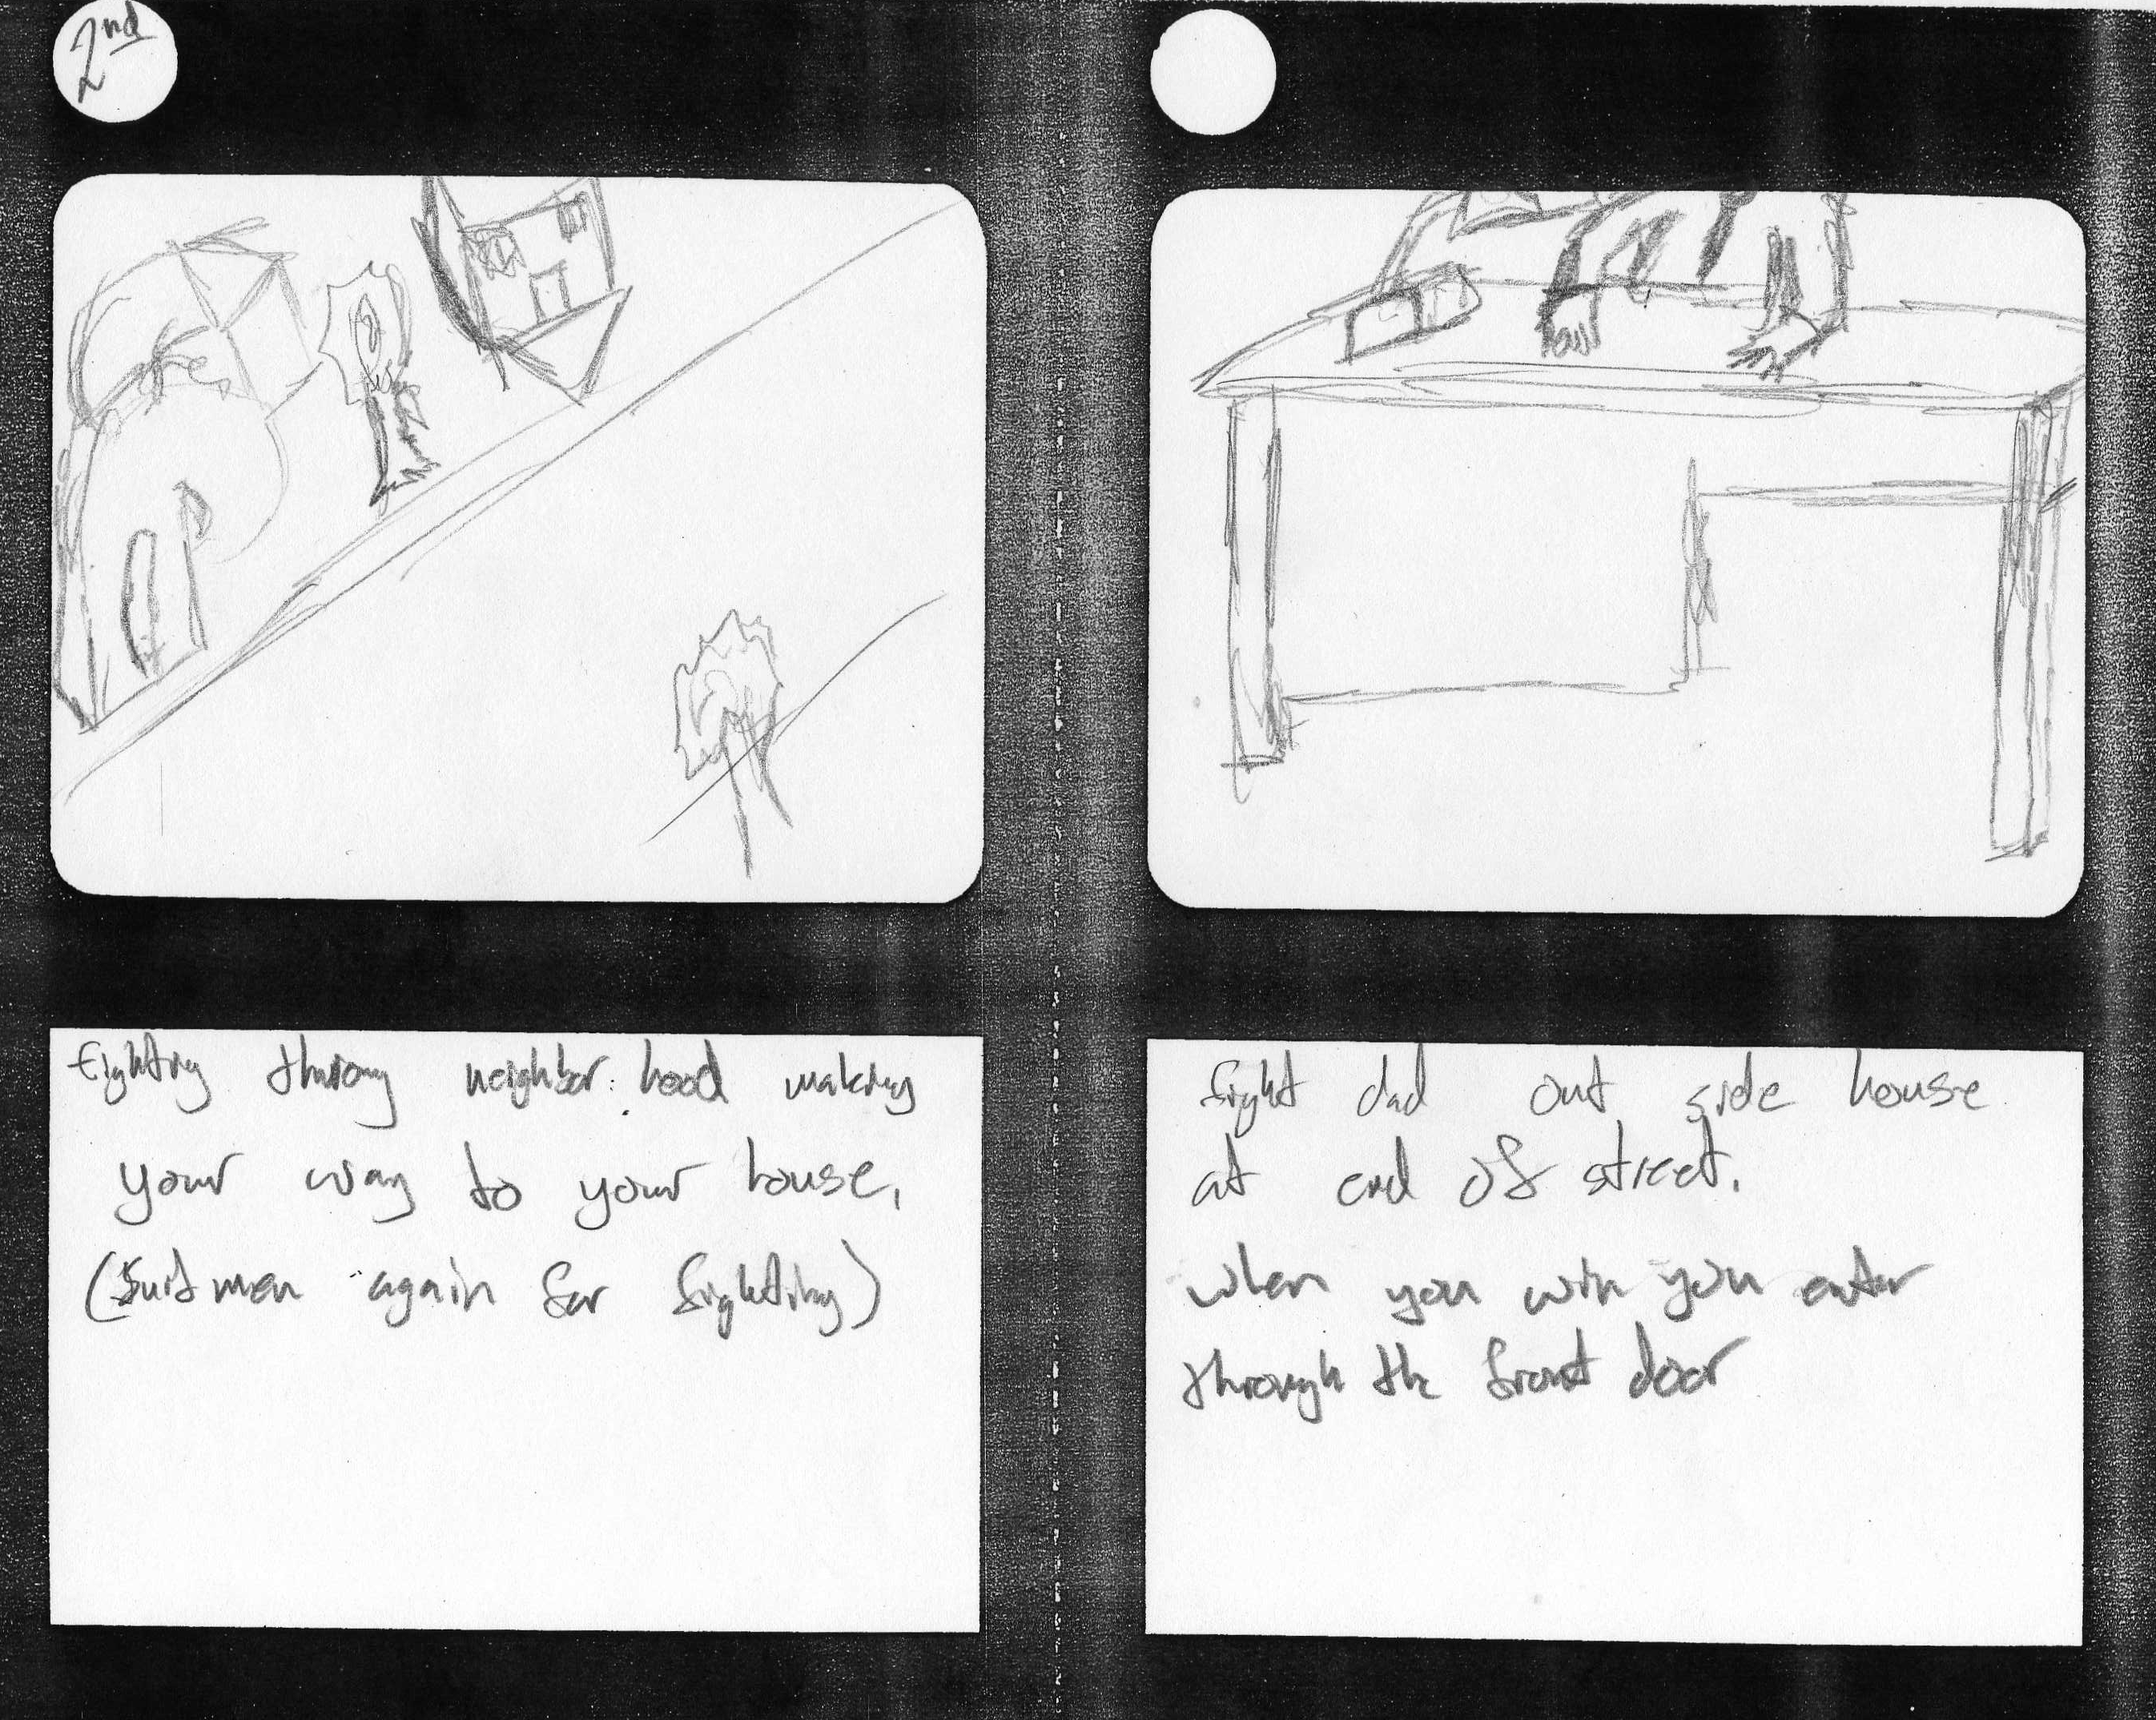 2nd
fighting throug neighbor hood making
your way to your house,
(suit men again for fighting)
fight dad out side house
at end of street.
when you win you enter
through the front door